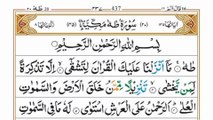 ٤٣٧
سُوْرَةُ طٰهٰ مَكِّيَّةٌ
بِسْمِ اللّٰهِ الرَّحْمٰنِ الرَّحِيْمِ
طٰهٰ مَاۤ اَنْزَلْنَا عَلَيْكَ الْقُرْاٰنَ لِتَشْقٰۤى اِلَّا تَذْكِرَةً
لِّمَنْ يَّخْشٰى تَنْزِيْلًا مِّمَّنْ خَلَقَ الْاَرْضَ وَالسَّمٰوٰتِ
الْعُلٰى اَلرَّحْمٰنُ عَلَى الْعَرْشِ اسْتَوٰى لَهٗ مَا فِى السَّمٰوٰتِ